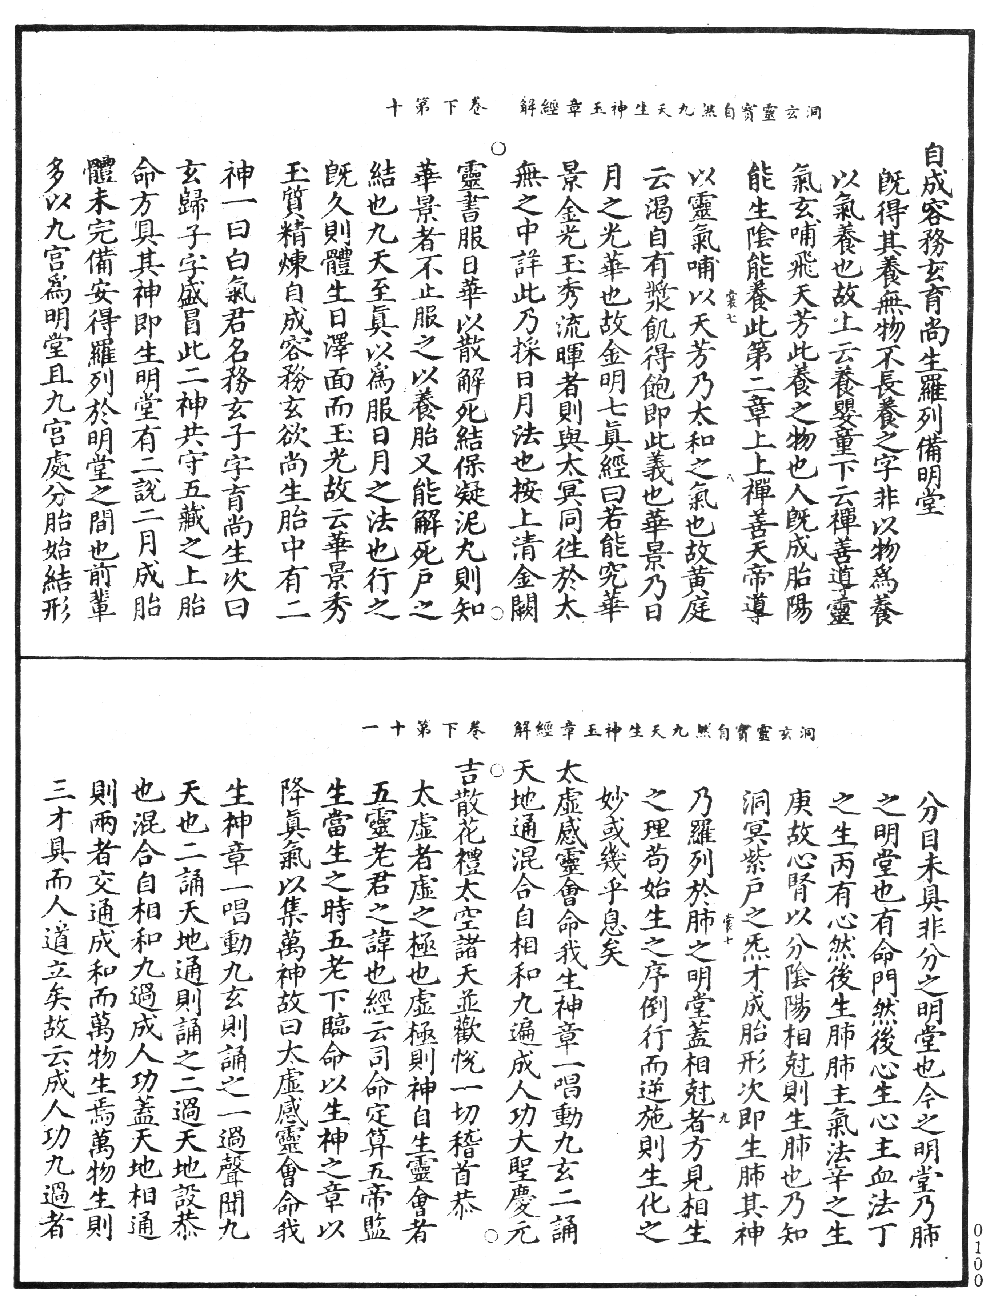 洞玄靈寶自然九天生神玉章經解　卷下第十
自成容務玄育尚生羅列備明堂
既得其養無物不長養之字非以物爲養
以氣養也故上云養嬰童下云禪善導靈
氣玄哺飛天芳此養之物也人既成胎陽
能生陰能養此第二章上上禪善天帝導
裳七　八
以靈氣哺以天芳乃太和之氣也故黃庭
云渴自有漿飢得飽即此義也華景乃日
月之光華也故金明七眞經曰若能究華
景金光玉秀流暉者則與太冥同往於太
無之中詳此乃採日月法也按上清金闕
靈書服日華以散解死結保凝泥丸則知
華景者不止服之以養胎又能解死戶之
結也九天至眞以爲服日月之法也行之
既久則體生日澤面而玉光故云華景秀
玉質精煉自成容務玄欲尚生胎中有二
神一曰白氣君名務玄子字育尚生次曰
玄歸子字盛昌此二神共守五藏之上胎
命方具其神即生明堂有二說二月成胎
體未完備安得羅列於明堂之間也前輩
多以九宮爲明堂且九宮處分胎始結形
洞玄靈寶自然九天生神玉章經解　卷下第十一
八分目未具非分之明堂也今之明堂乃肺
之明堂也有命門然後心生心主血法丁
之生丙有心然後生肺肺主氣法辛之生
庚故心腎以分陰陽相尅則生肺也乃知
洞冥紫戶之炁才成胎形次即生肺其神
裳十　九
乃羅列於肺之明堂蓋相尅者方見相生
之理苟始生之序倒行而逆施則生化之
妙或幾乎息矣
太虛感靈會命我生神章一唱動九玄二誦
天地通混合自相和九遍成人功大聖慶元
吉散花禮太空諸天並歡悅一切稽首恭
太虛者虛之極也虛極則神自生靈會者
五靈老君之諱也經云司命定算五帝監
生當生之時五老下臨命以生神之章以
降眞氣以集萬神故曰太虛感靈會命我
生神章一唱動九玄則誦之一過聲聞九
天也二誦天地通則誦之二過天地設恭
也混合自相和九過成人功蓋天地相通
則兩者交通成和而萬物生焉萬物生則
三才具而人道立矣故云成人功九過者
0100